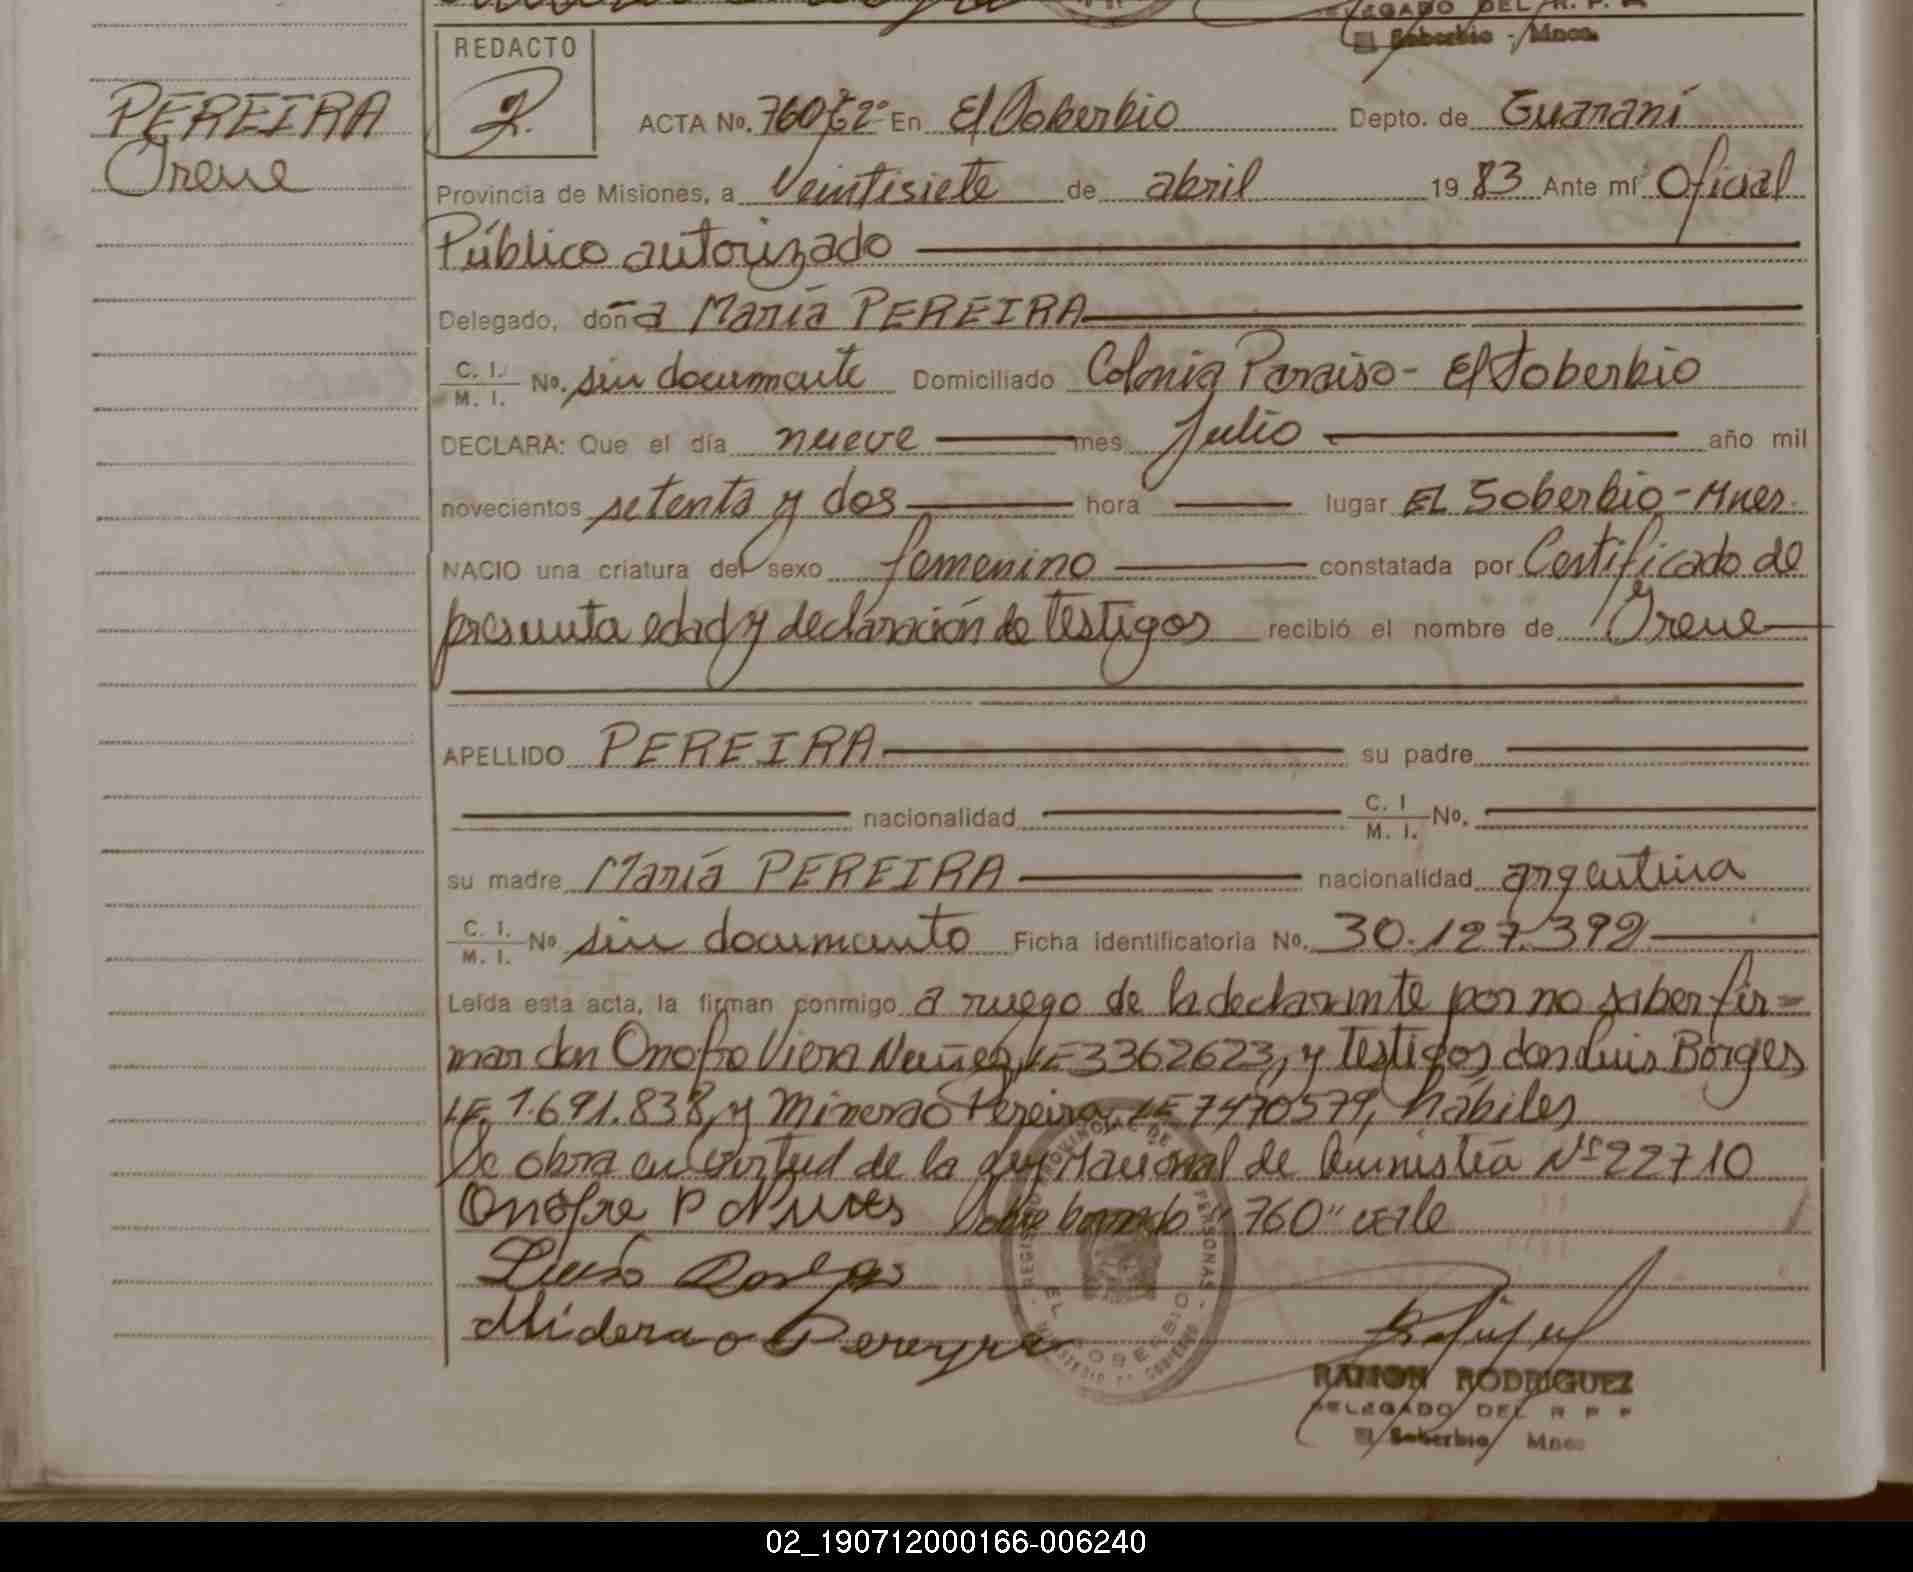 DELEGADO DEL R. P. P.
El Soberbio - Mnes.
REDACTO
PEREIRA
Irene
ACTA No. 760 Tº2º En El Soberbio Depto. de Guaraní
Provincia de Misiones, a Veintisiete de abril 19 83 Ante mí Oficial
Público autorizado
Delegado, doña María PEREIRA
C. I. M. I. No. sin documento Domiciliado Colonia Paraiso - El Soberbio
DECLARA: Que el día nueve mes Julio año mil
novecientos setenta y dos hora lugar EL Soberbio - Mnes.
NACIO una criatura del sexo femenino constatada por Certificado de
presunta edad y declaración de testigos recibió el nombre de Irene
APELLIDO PEREIRA su padre
nacionalidad C. I M. I. No.
su madre María PEREIRA nacionalidad argentina
C. I. M. I. No sin documento Ficha identificatoria No. 30.127.392
Leída esta acta, la firman conmigo a ruego de la declarante por no saber fir=
mar don Onofre Viera Nuñez, LE 3362623, y testigos don Luis Borges
LE. 1.691.838, y Minerao Pereira, LE 7470579, hábiles
Se obra en virtud de la Ley Nacional de Amnistía Nº 22710
Onofre P Nunes Sobre borrado "760" vale
Luis Borges
Miderao Pereyra
REGISTRO PROVINCIAL DE PERSONAS
EL SOBERBIO
MINISTERIO DE GOBIERNO
RAMON RODRIGUEZ
DELEGADO DEL R P P
El Soberbio Mnes
02_190712000166-006240